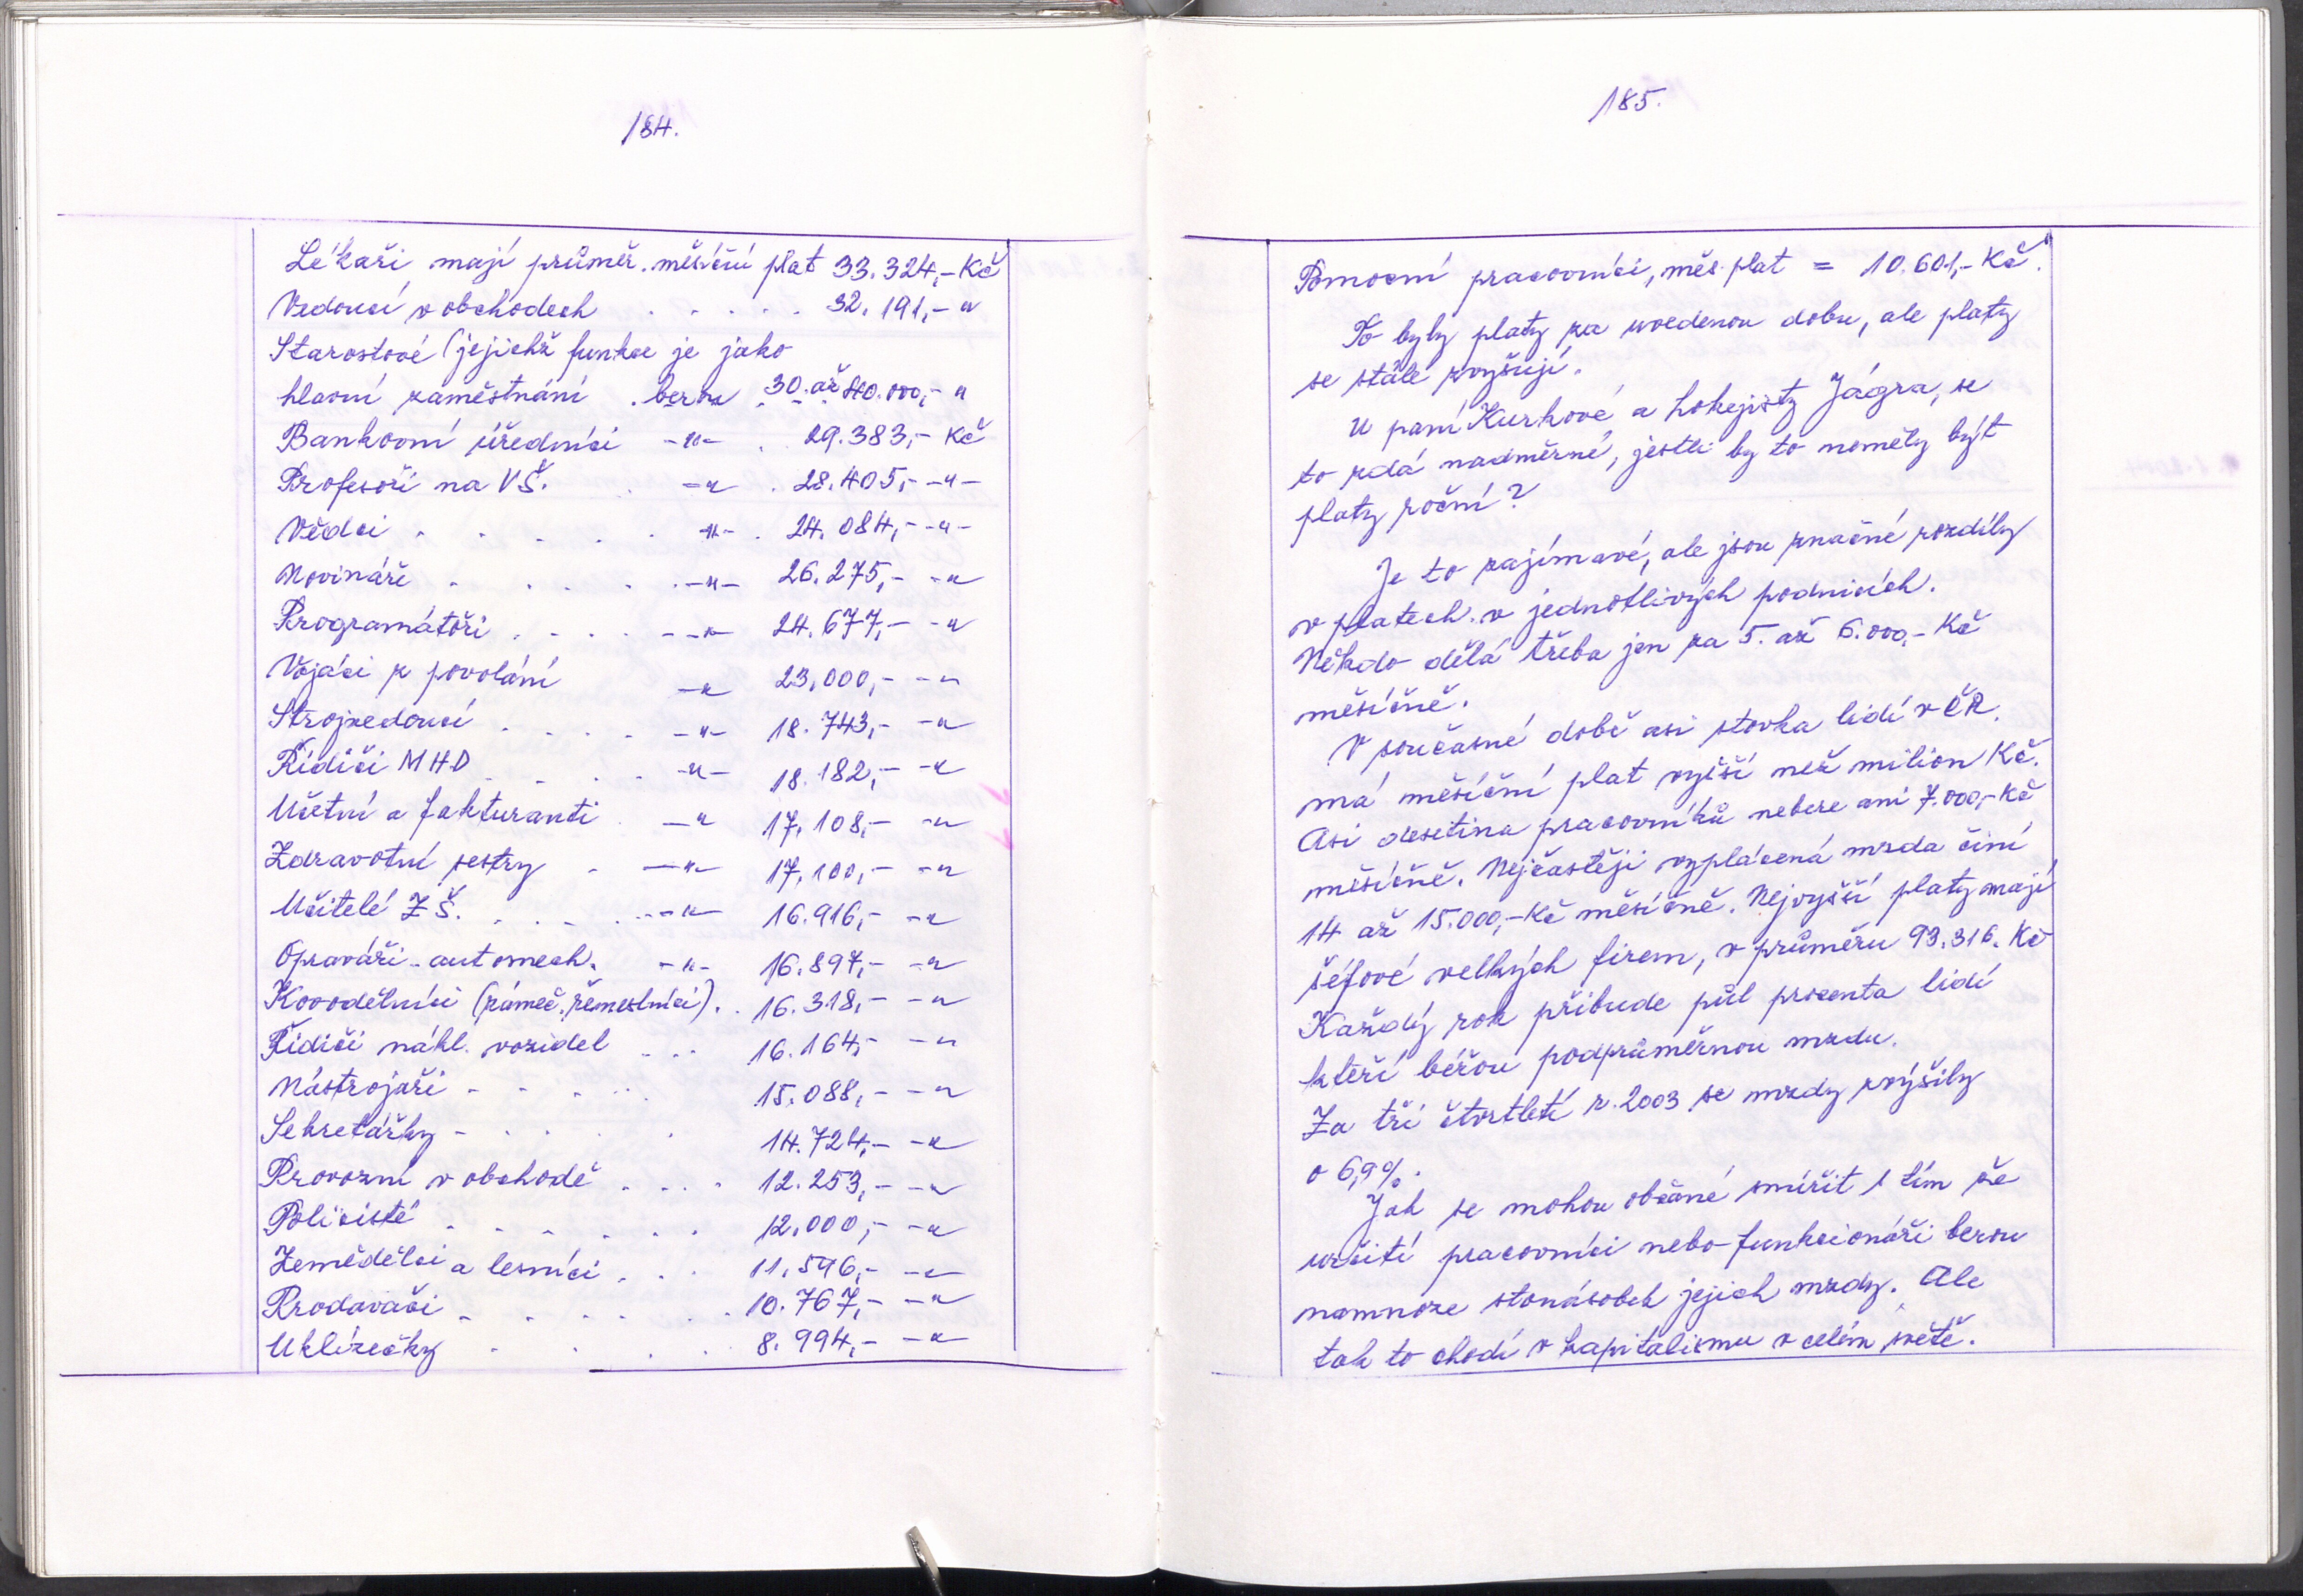 184.
Lékaři mají průměr. měsíční plat 33.324,- Kč
Vedoucí v obchodech . . . . . 32.191,- "
Starostové (jejichž funkce je jako
hlavní zaměstnání . berou 30. až 40.000,- "
Bankovní úředníci -"- . 29.383,- Kč
Profesoři na VŠ. . -" . 28.405,- -"-
Vědci . . . . . -"- . 24.084,- -"-
Novináři . . . . . -"- 26.275,- -"
Programátoři . . . . -"- 24.677,- -"
Vojáci z povolání -" 23.000,- -"
Strojvedoucí . . . . -"- 18.743,- -"
Řidiči MHD . . . . -"- 18.182,- -"
Účetní a fakturanti . -" 17.108,- -"
Zdravotní sestry . -"- 17.100,- -"
Učitelé ZŠ. . . . . -"- 16.916,- -"
Opraváři-automech. -"- 16.897,- -"
Kovodělníci (zámeč. řemeslníci). . 16.318,- -"
Řidiči nákl. vozidel . . . 16.164,- -"
Nástrojaři - . . . . 15.088,- -"
Sekretářky - . . . . 14.724,- -"
Provozní v obchodě . . . . 12.253,- -"
Policisté . . . . . . 12.000,- -"
Zemědělci a lesníci . . . 11.596,- -"
Prodavači . . . . . . 10.767,- -"
Uklízečky . . . . 8.994,- -"
185.
Pomocní pracovníci, měs. plat = 10.601,- Kč.
To byly platy za uvedenou dobu, ale platy
se stále zvyšují.
U paní Kurkové a hokejisty Jágra, se
to zdá nadměrné, jestli by to neměly být
platy roční?
Je to zajímavé, ale jsou značné rozdíly
v platech v jednotlivých podnicích.
Někdo dělá třeba jen za 5. až 6.000,- Kč
měsíčně.
V současné době asi stovka lidí v ČR.
má měsíční plat vyšší než milion Kč.
Asi desetina pracovníků nebere ani 7.000,- Kč
měsíčně. Nejčastěji vyplácená mzda činí
14 až 15.000,- Kč měsíčně. Nejvyšší platy mají
šéfové velkých firem, v průměru 93.316. Kč
Každý rok přibude půl procenta lidí
kteří béřou podprůměrnou mzdu.
Za tři čtvrtletí r. 2003 se mzdy zvýšily
o 6,9%.
Jak se mohou občané smířit s tím že
určití pracovníci nebo funkcionáři berou
mnoze stonásobek jejich mzdy. Ale
tak to chodí v kapitalismu v celém světě.